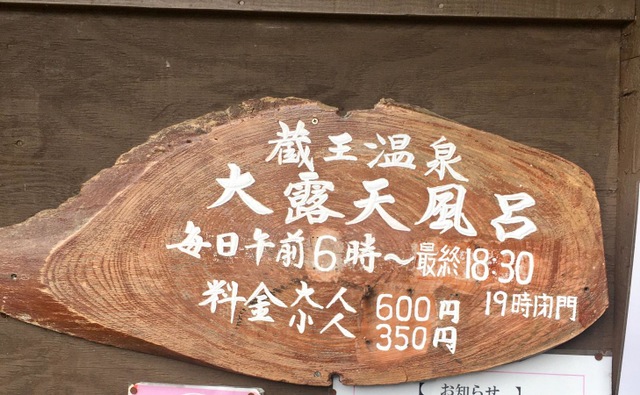 蔵王温泉
大露天風呂
毎日午前6時～最終18:30
19時閉門
料金 大人 600円
小人 350円
【お知らせ】